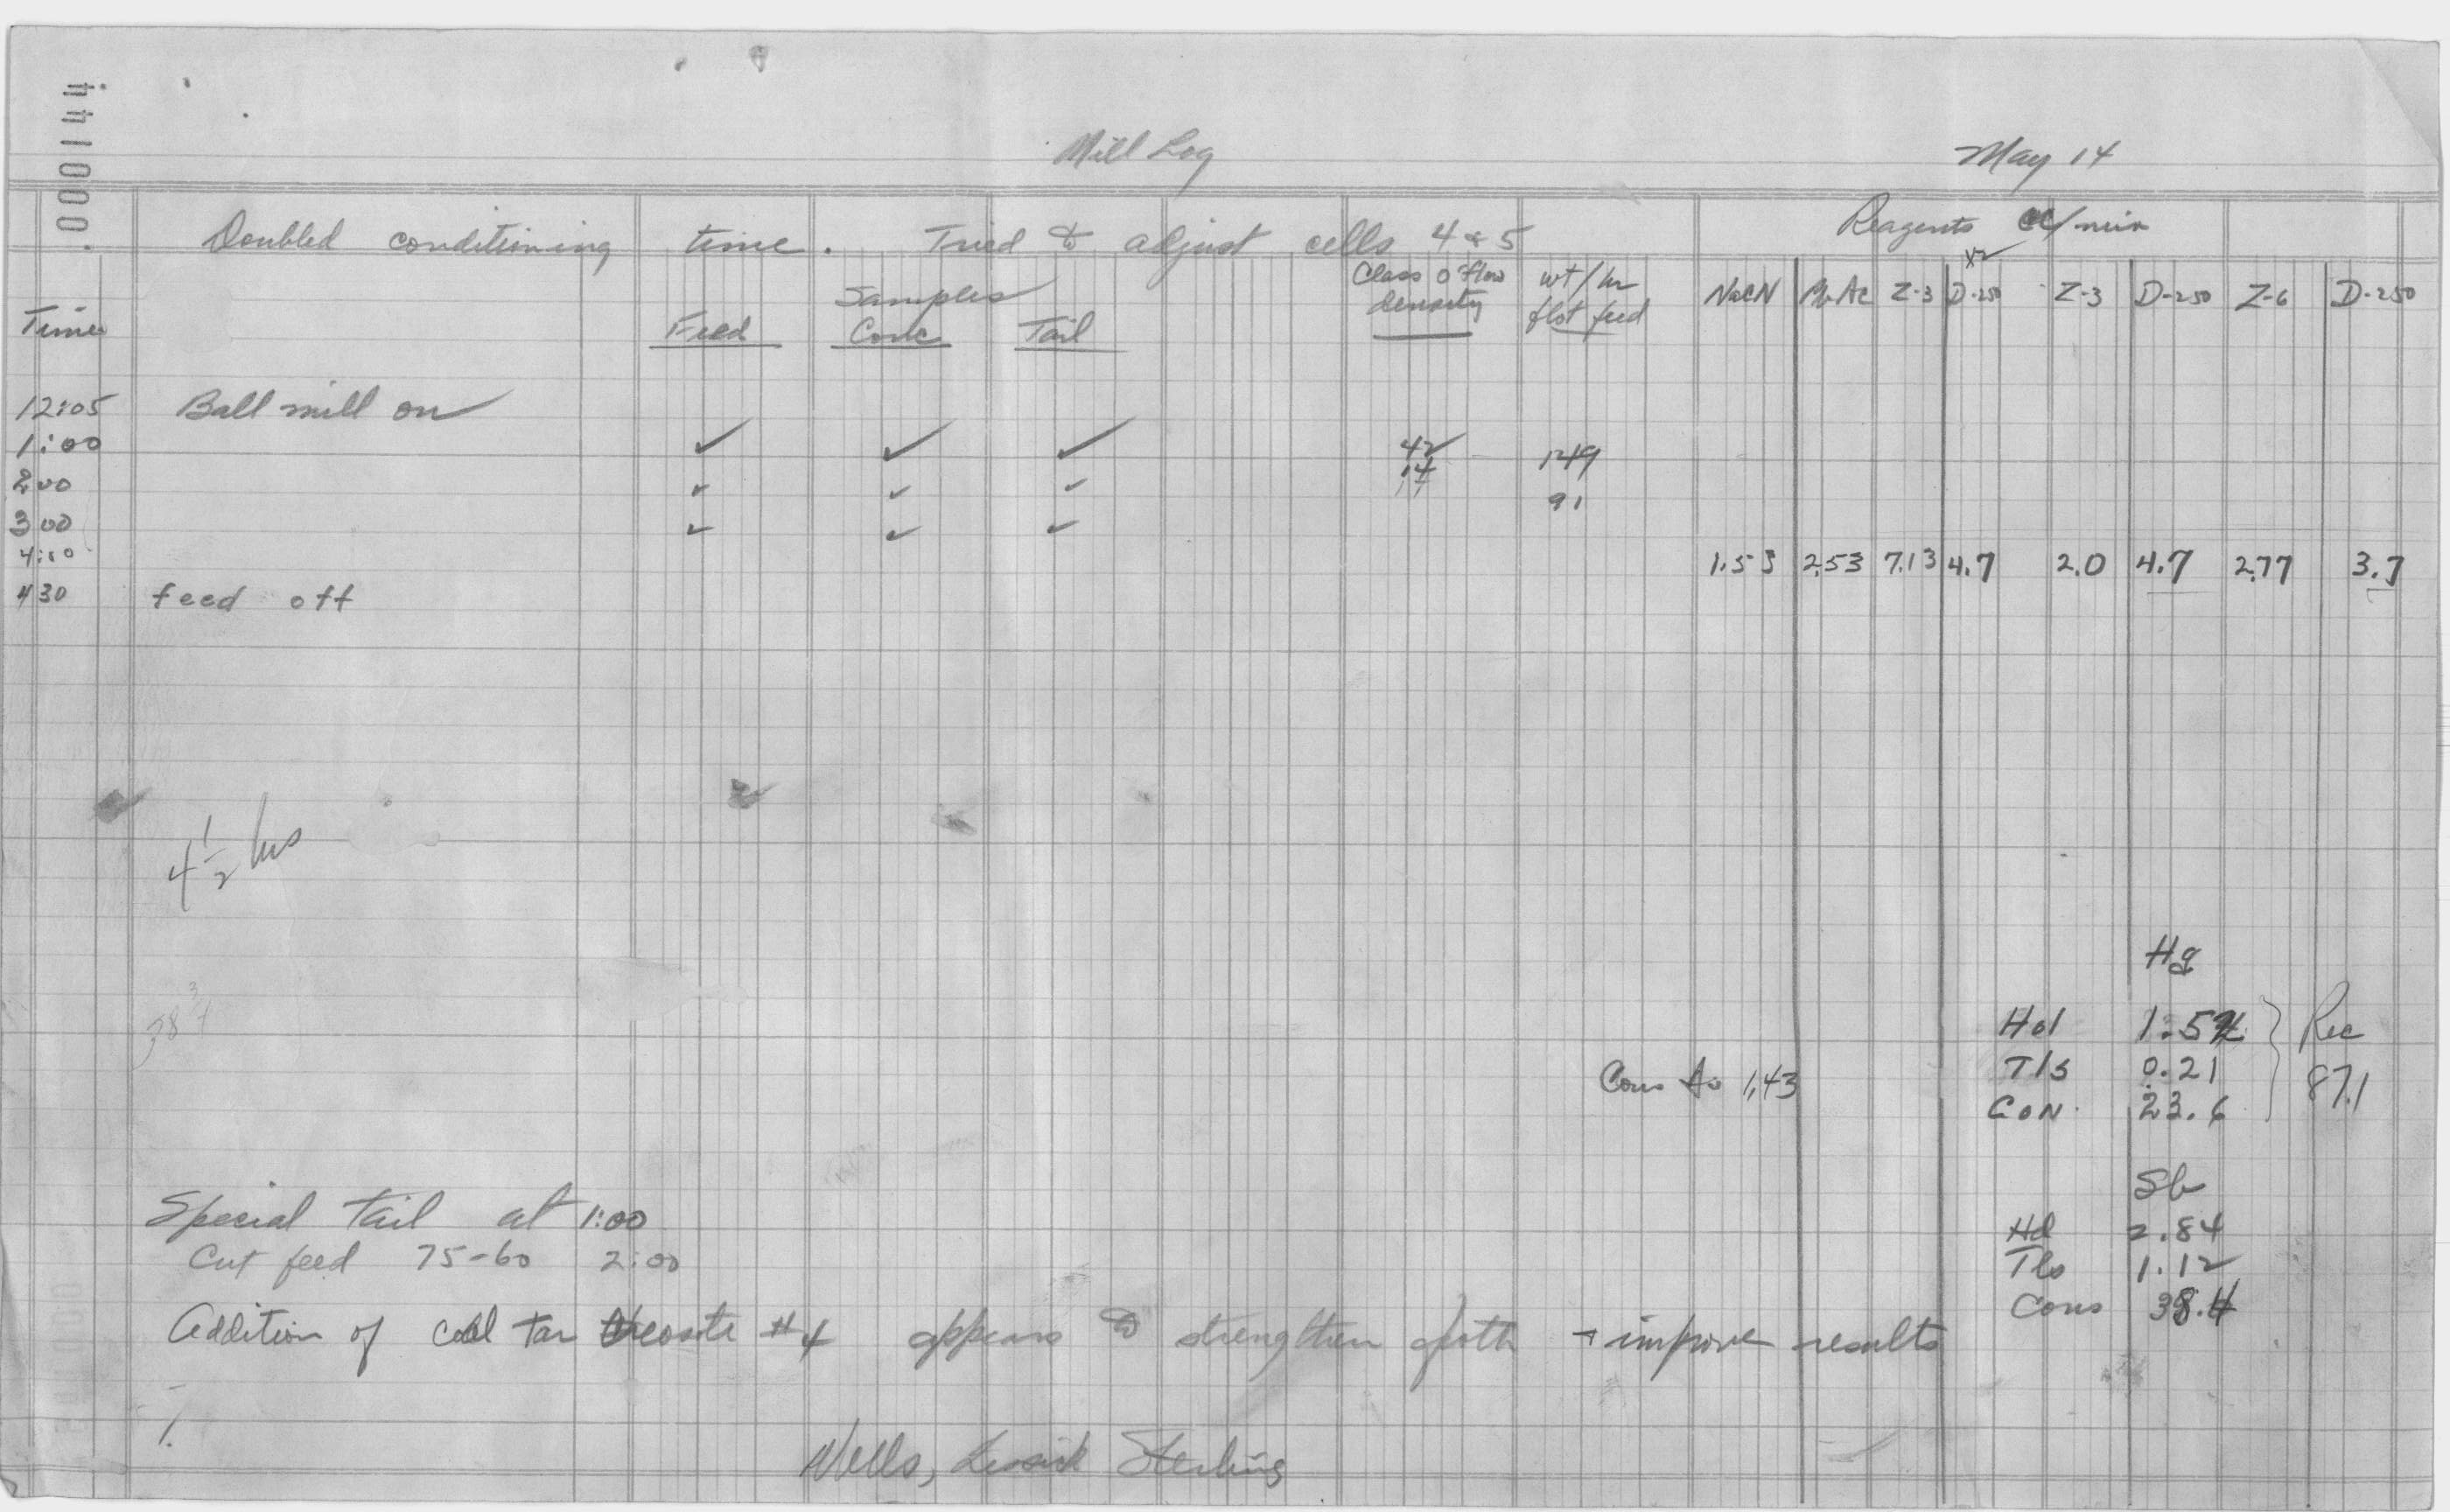 000144
Mill Log May 14
Doubled conditioning time. Tried to adjust cells 4 & 5 Reagents cc/min
x2
Time Feed Samples Conc Tail Class O'flow density wt/hr flot feed NaCN Pb Ac Z-3 D-250 Z-3 D-250 Z-6 D-250
12:05 Ball mill on
1:00 ✓ ✓ ✓ 42 149
2:00 ✓ ✓ ✓ 14 91
3 00 ✓ ✓ ✓
4:10 1.53 2.53 7.13 4.7 2.0 4.7 2.77 3.7
4 30 feed off
4 1/2 hrs
Hg
38 3/4
Hd 1.5 Rec
Cons As 1.43 Tls 0.21 87.1
Con. 23.6
Sb
Special tail at 1:00
Hd 2.84
Cut feed 75-60 2:00
Tls 1.12
Cons 38.4
Addition of coal tar creosote #4 appears to strengthen froth + improve results
Wells, Sterling